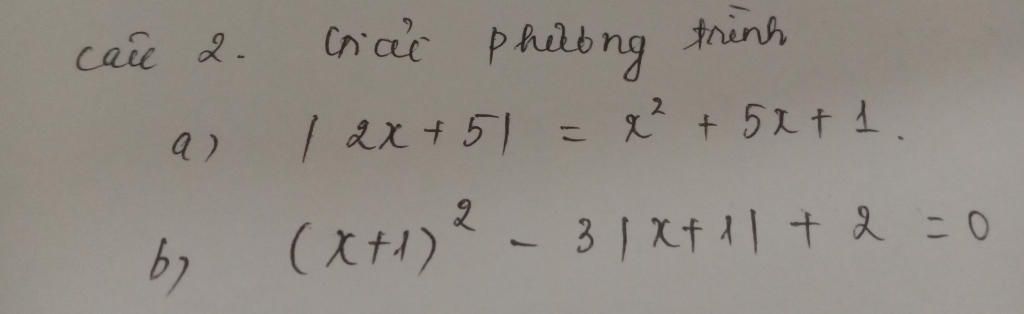 Câu 2. Giải phương trình
a) | 2x + 5| = x² + 5x + 1.
b) (x+1)² - 3 | x+1| + 2 = 0